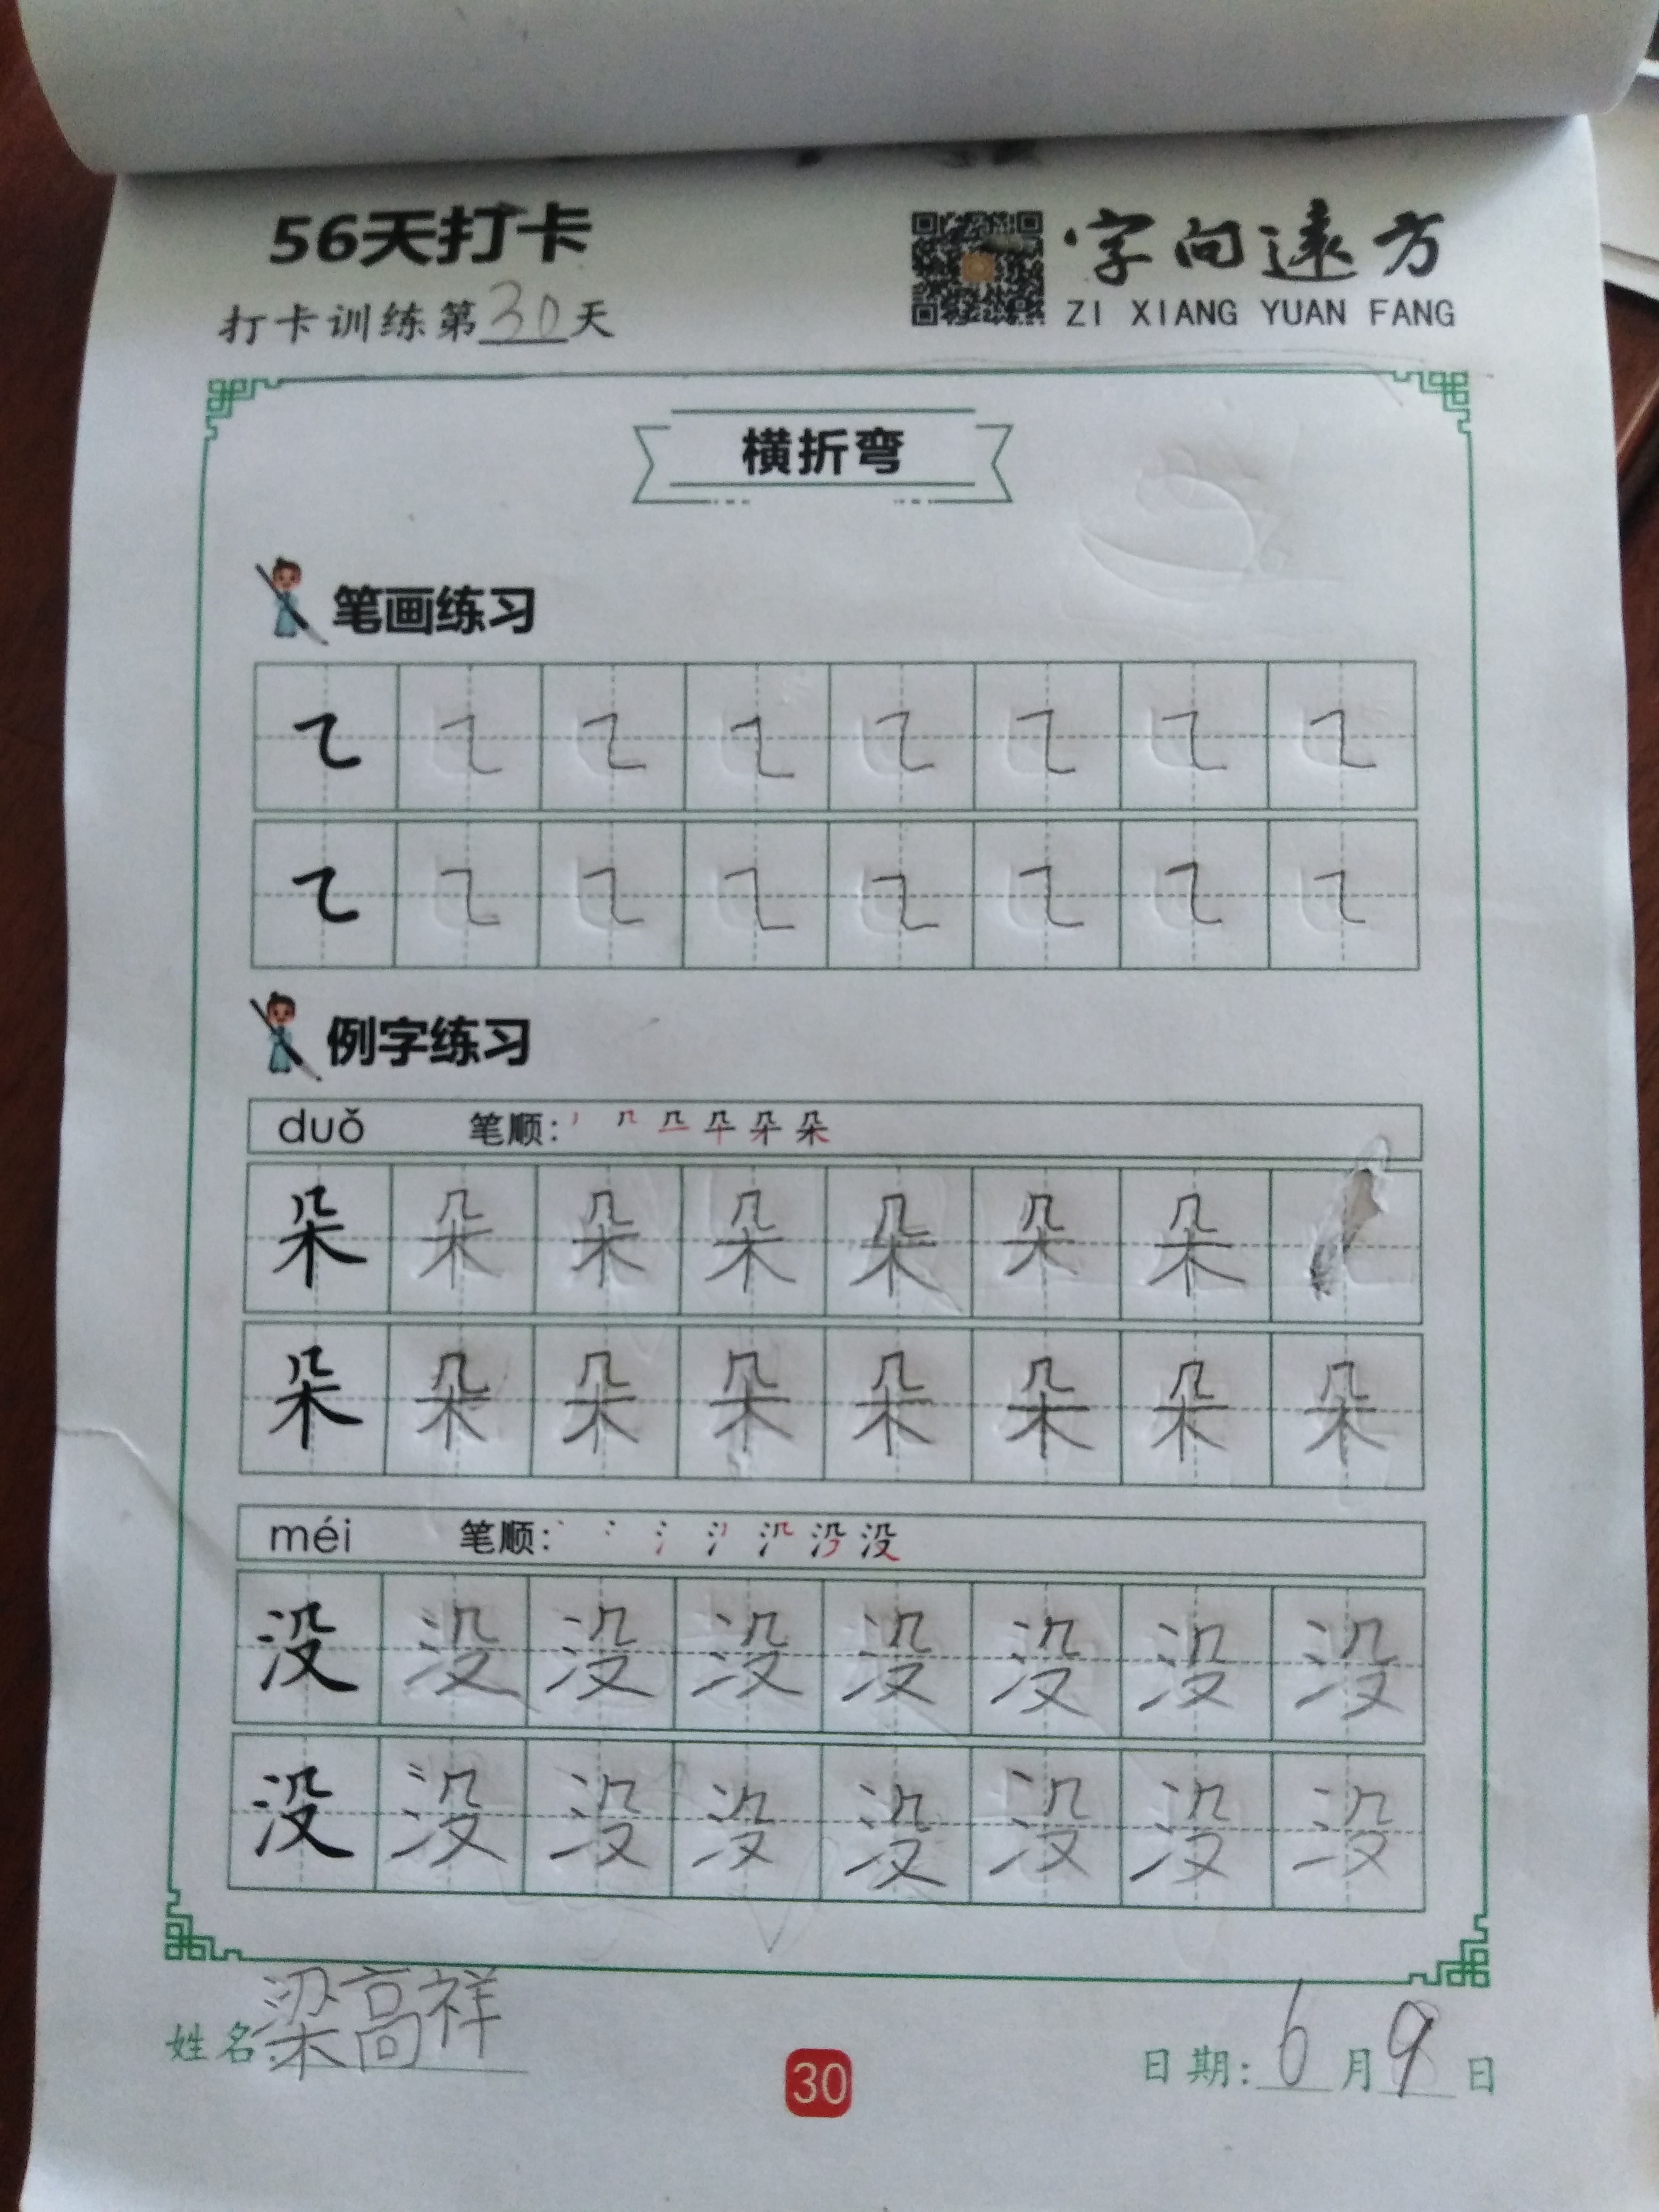 56天打卡
字向遠方
打卡训练第30天
ZI XIANG YUAN FANG
横折弯
笔画练习
例字练习
duǒ 笔顺: 朵
朵 朵 朵 朵 朵 朵 朵
朵 朵 朵 朵 朵 朵 朵 朵
méi 笔顺: 没
没 没 没 没 没 没 没 没
没 没 没 没 没 没 没 没
姓名:梁高祥
30
日期:6月9日